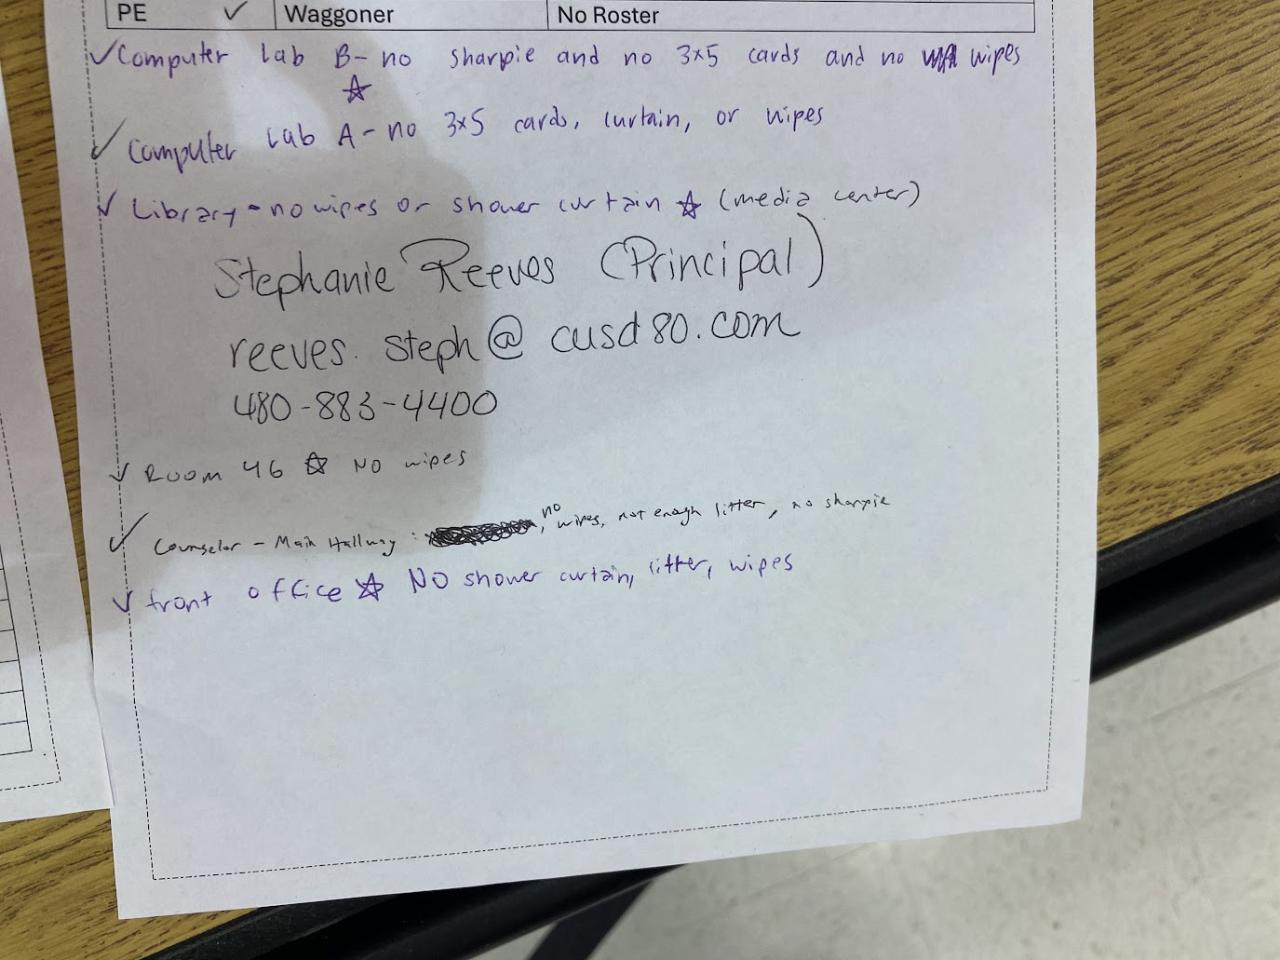 PE ✓ Waggoner No Roster
✓ Computer Lab B- no sharpie and no 3x5 cards and no wipes
☆
✓ Computer Lab A- no 3x5 cards, curtain, or wipes
✓ Library - no wipes or shower curtain ☆ (media center)
Stephanie Reeves (Principal)
reeves.steph@cusd80.com
480-883-4400
✓ Room 46 ☆ NO wipes
✓ Counselor - Main Hallway: , no wipes, not enough litter, no sharpie
✓ front office ☆ NO shower curtain, litter, wipes